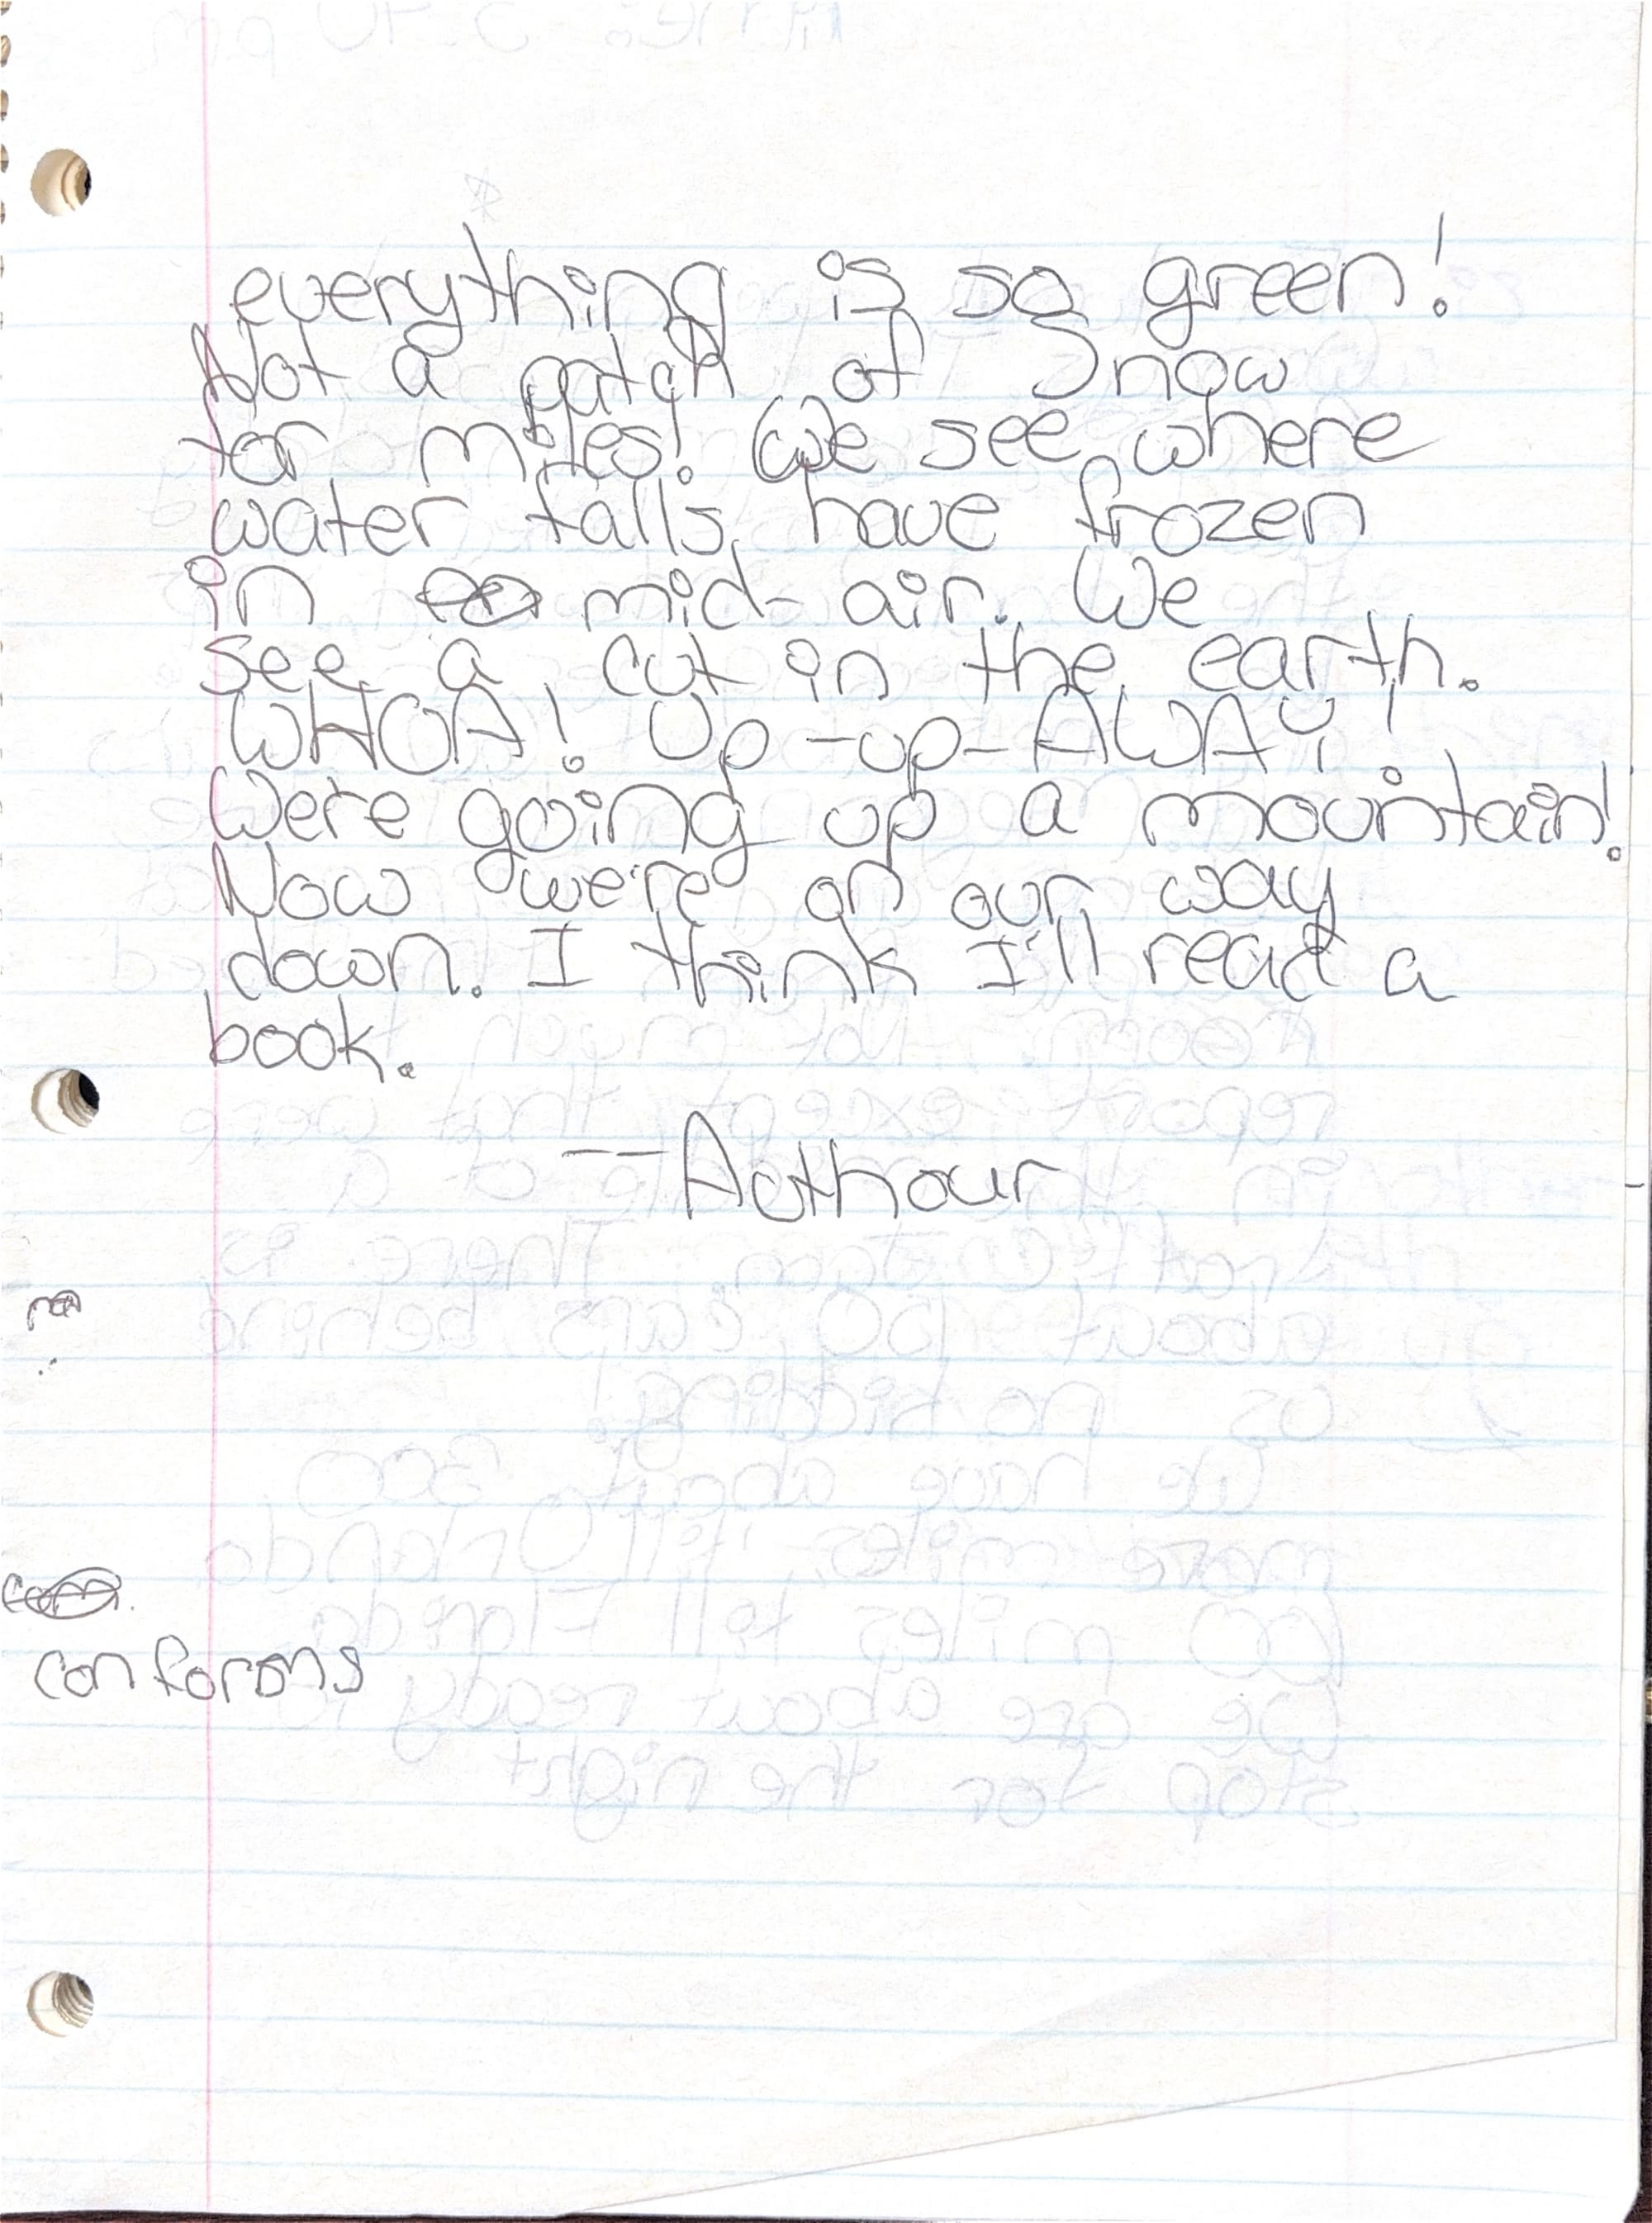 everything is so green!
Not a patch of Snow
for miles! We see where
water falls have frozen
in mid-air. We
see a cut in the earth.
WHOA! Up-up-AWAY!
We're going up a mountain!
Now we're on our way
down. I think I'll read a
book.
--Authour
conforons